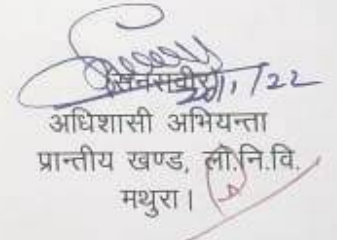 20/1/22
अधिशासी अभियन्ता
प्रान्तीय खण्ड, लो.नि.वि.
मथुरा।